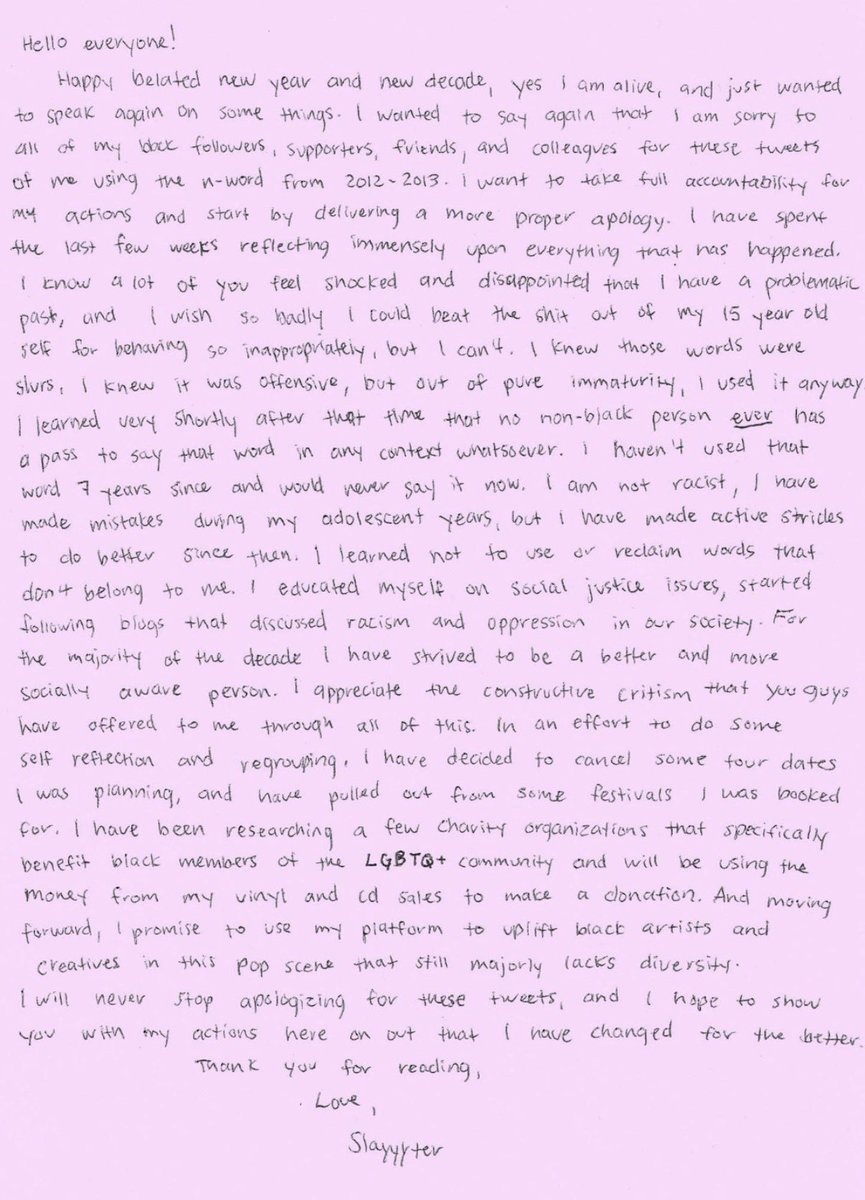 Hello everyone!
Happy belated new year and new decade, yes I am alive, and just wanted
to speak again on some things. I wanted to say again that I am sorry to
all of my black followers, supporters, friends, and colleagues for these tweets
of me using the n-word from 2012-2013. I want to take full accountability for
my actions and start by delivering a more proper apology. I have spent
the last few weeks reflecting immensely upon everything that has happened.
I know a lot of you feel shocked and disappointed that I have a problematic
past, and I wish so badly I could beat the shit out of my 15 year old
self for behaving so inappropriately, but I can't. I knew those words were
slurs, I knew it was offensive, but out of pure immaturity, I used it anyway.
I learned very shortly after that time that no non-black person ever has
a pass to say that word in any context whatsoever. I haven't used that
word 7 years since and would never say it now. I am not racist, I have
made mistakes during my adolescent years, but I have made active strides
to do better since then. I learned not to use or reclaim words that
don't belong to me. I educated myself on social justice issues, started
following blogs that discussed racism and oppression in our society. For
the majority of the decade I have strived to be a better and more
socially aware person. I appreciate the constructive critism that you guys
have offered to me through all of this. In an effort to do some
self reflection and regrouping, I have decided to cancel some tour dates
I was planning, and have pulled out from some festivals I was booked
for. I have been researching a few charity organizations that specifically
benefit black members of the LGBTQ+ community and will be using the
money from my vinyl and cd sales to make a donation. And moving
forward, I promise to use my platform to uplift black artists and
creatives in this pop scene that still majorly lacks diversity.
I will never stop apologizing for these tweets, and I hope to show
you with my actions here on out that I have changed for the better.
Thank you for reading,
Love,
Slayyyter